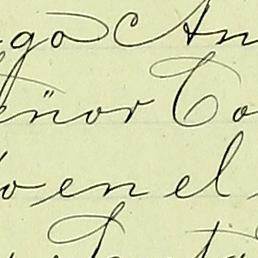 go An
eñor Co
o en el